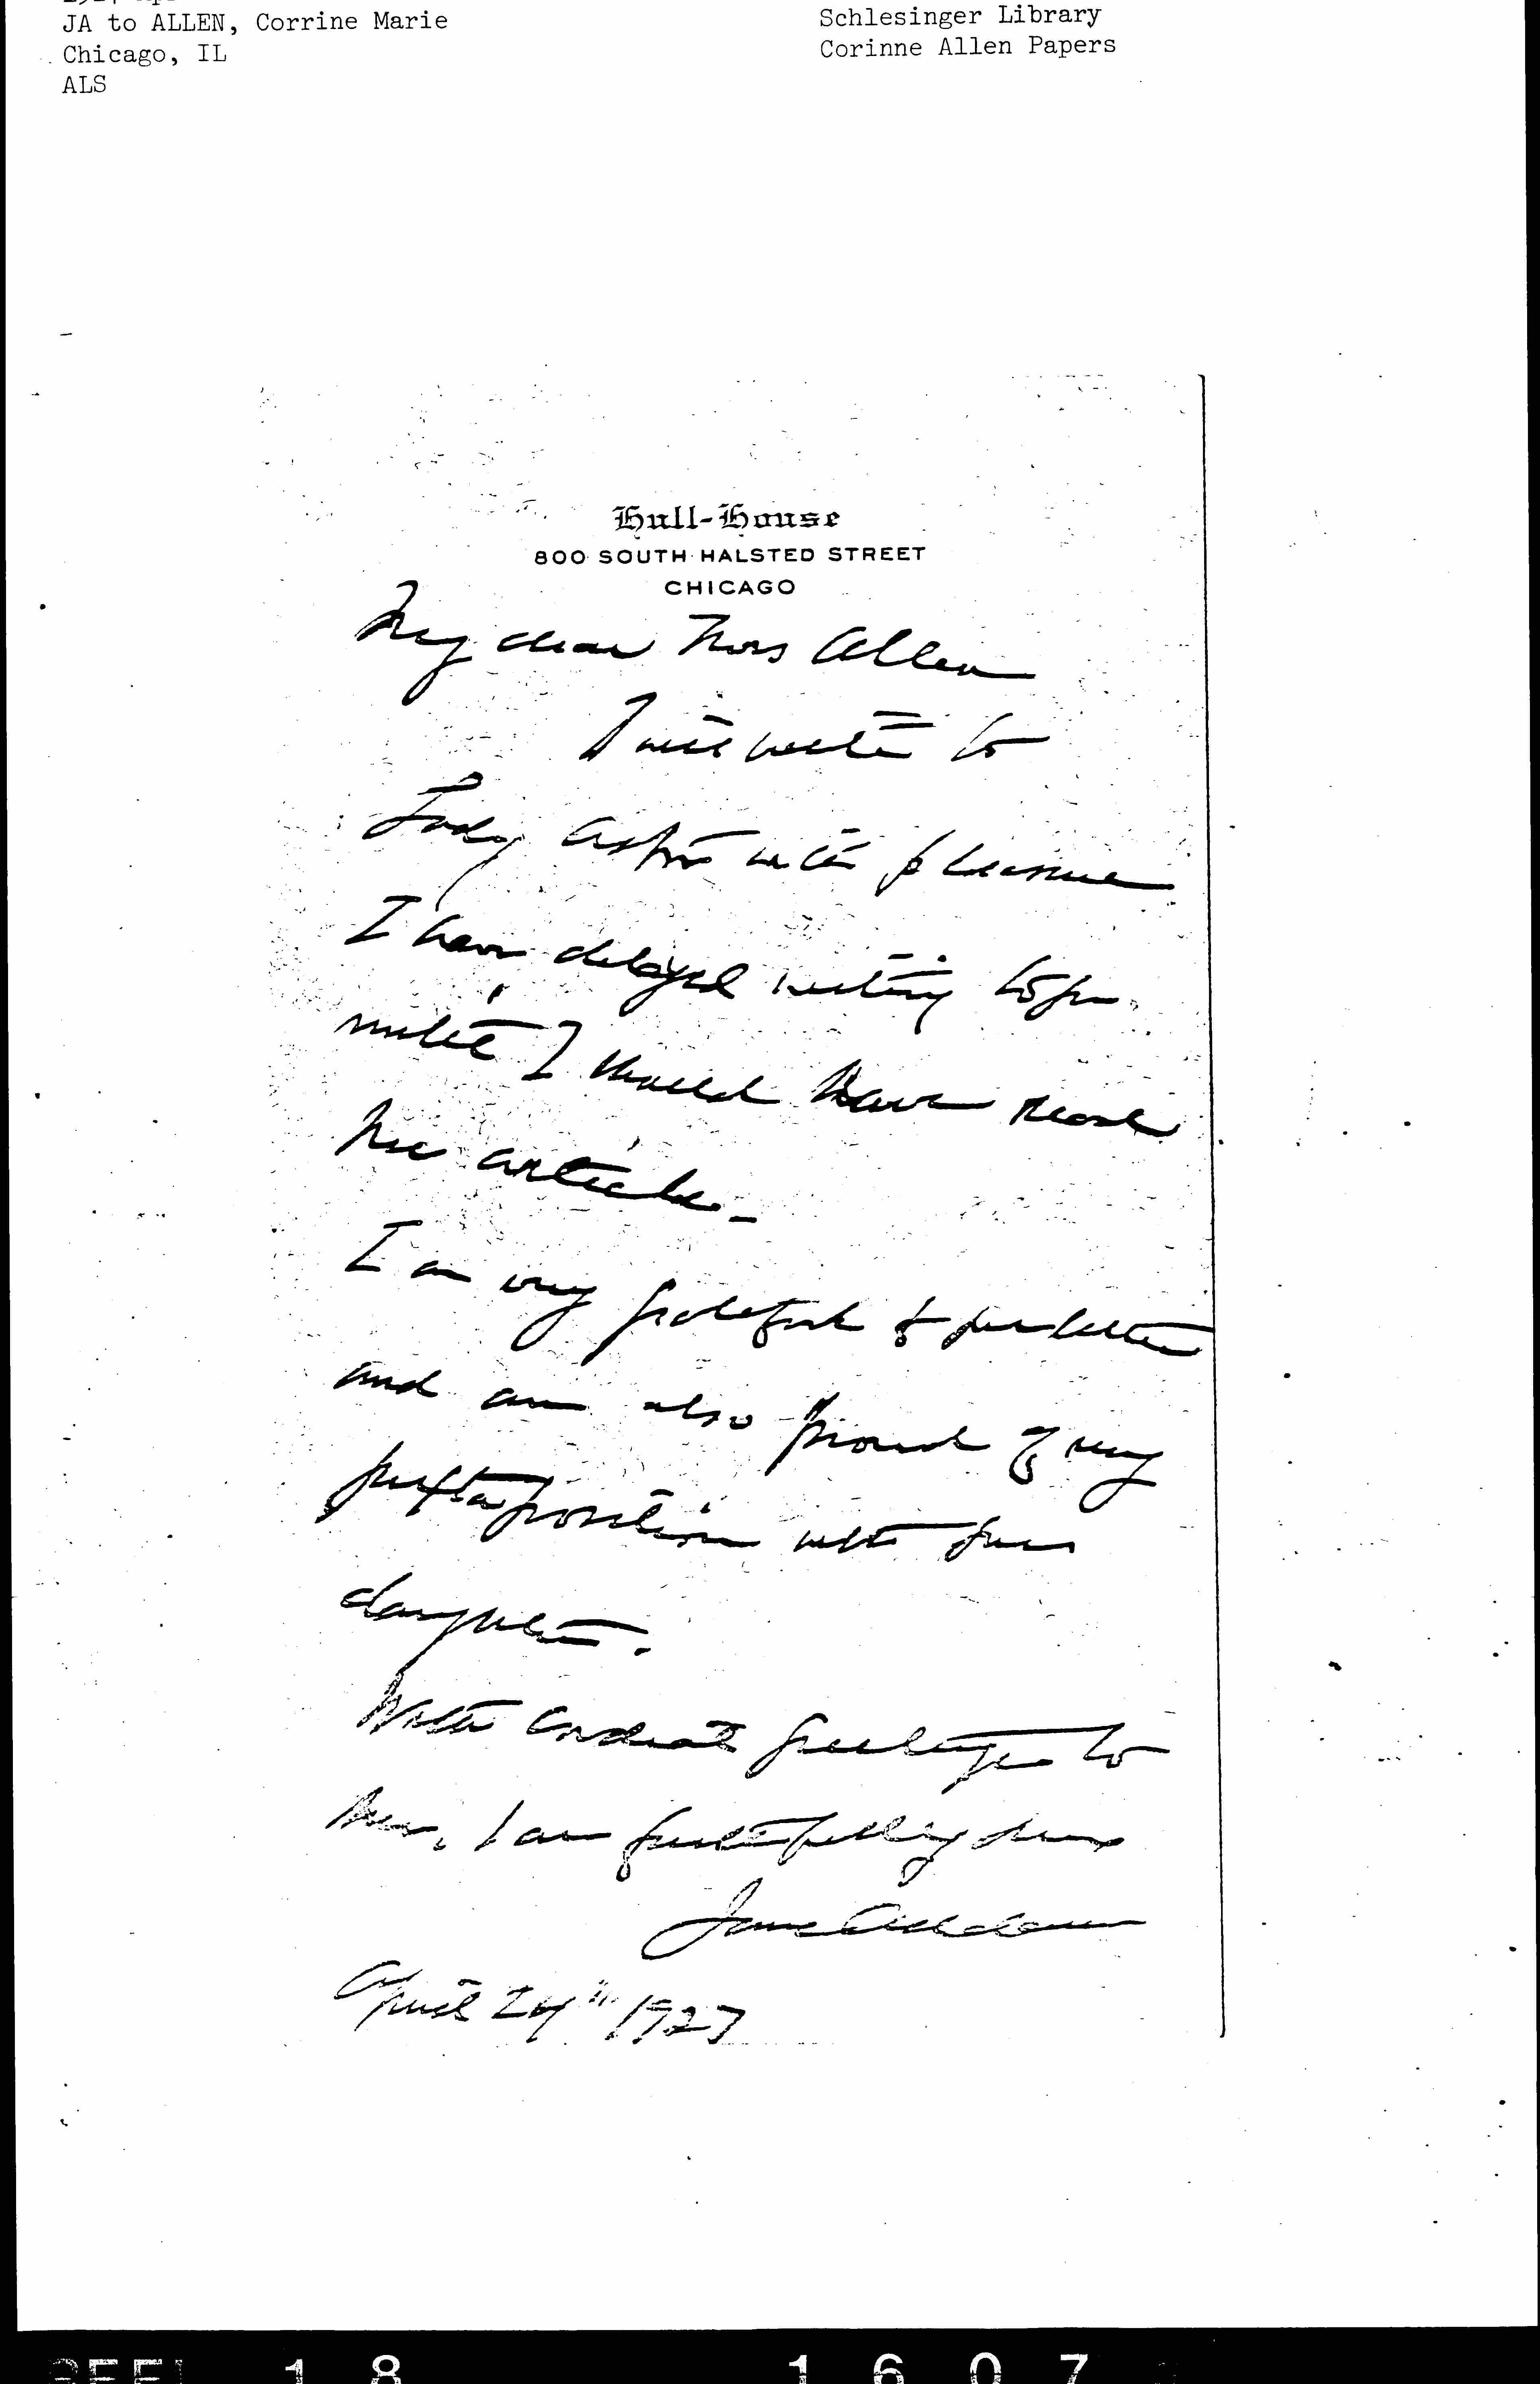 JA to ALLEN, Corrine Marie
Chicago, IL
ALS
Schlesinger Library
Corinne Allen Papers
Hull-House
800 SOUTH HALSTED STREET
CHICAGO
My dear Mrs Allen
I will write to
Lady Astor with pleasure
I have delayed writing to you
until I should have read
her article.
I am very grateful for your letter
and am also proud of my
juxtaposition with your
daughter.
With cordial greetings to
her, I am faithfully yours
Jane Addams
April 24" 1927
REEL 18 1607